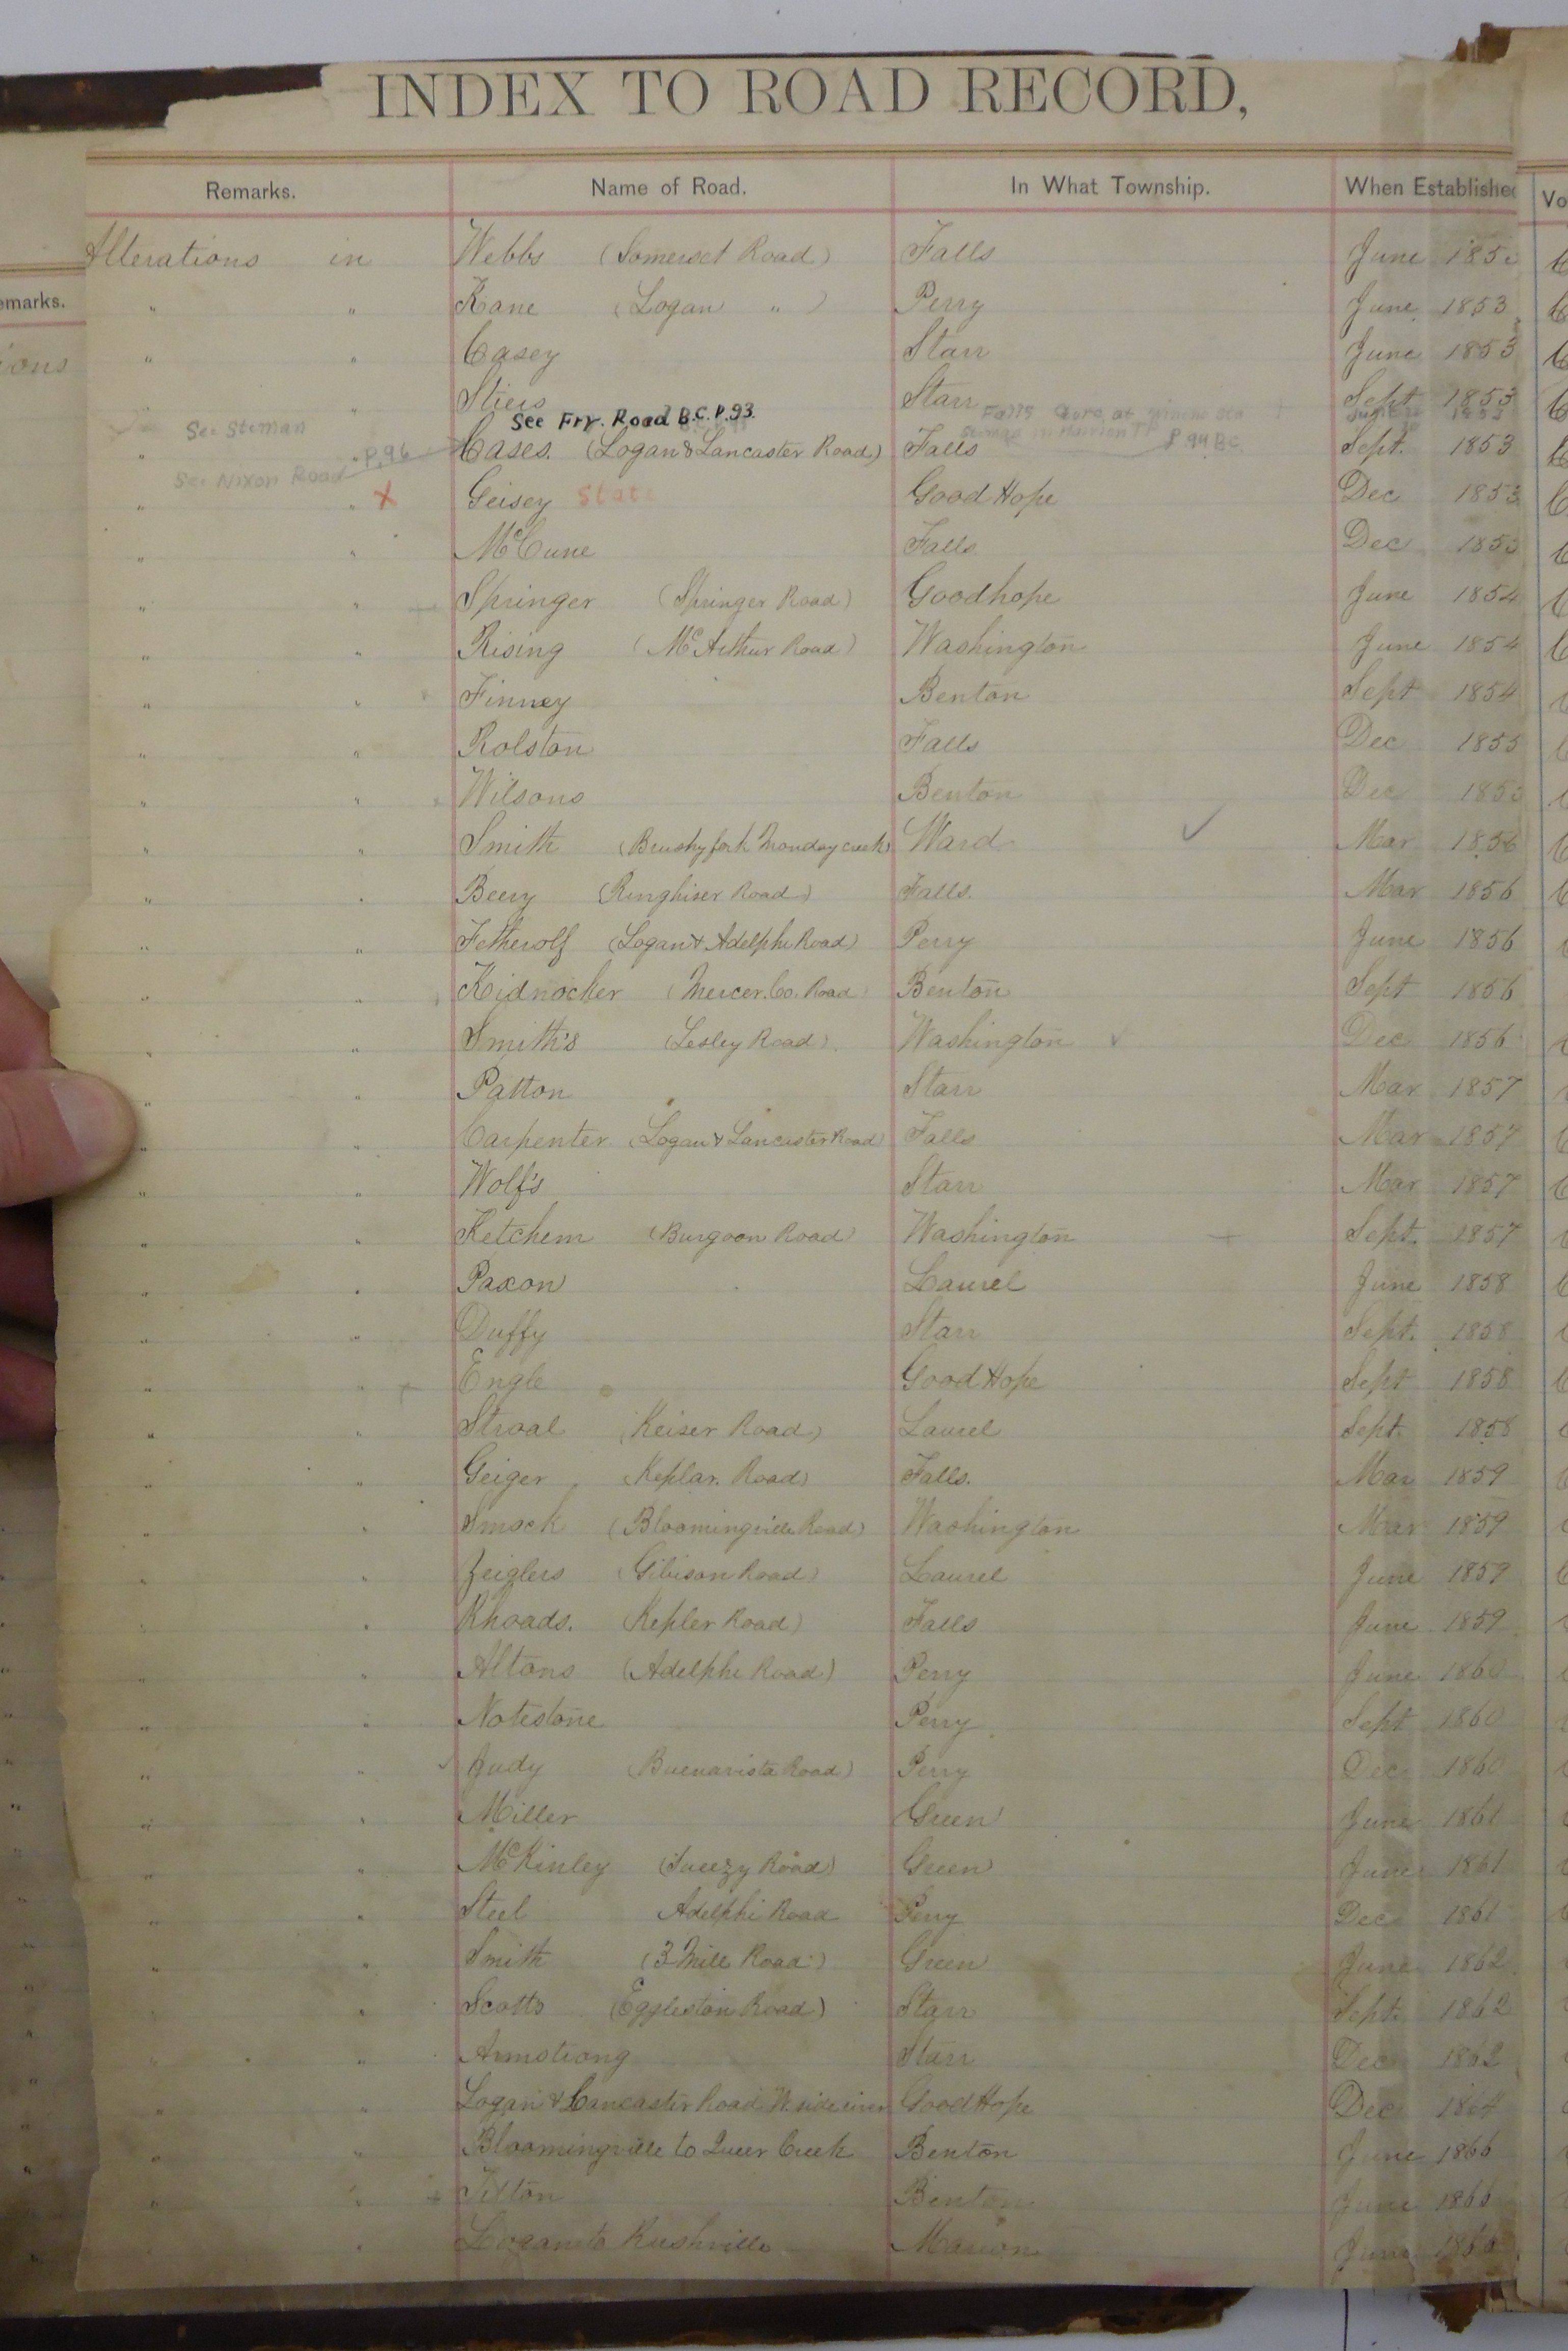 INDEX TO ROAD RECORD,
Remarks. Name of Road. In What Township. When Established Vo
emarks.
Alterations in Webbs (Somerset Road) Falls June 185
" " Kane (Logan " ) Perry June 1853
" " Casey Starr June 1853
ions
" " Stiers Starr Sept 1853
See Fry. Road B.C. P. 93. Falls Gore at
See Steman P 94 BC
" " P. 96 Cases. (Logan & Lancaster Road) Falls Sept. 1853
See Nixon Road
" " X Geisey State Good Hope Dec 1853
" " McCune Falls Dec 1853
" " Springer (Springer Road) Goodhope June 1854
" " Rising (McArthur Road) Washington June 1854
" " Finney Benton Sept 1854
" " Rolston Falls Dec 1855
" " Wilsons Benton Dec 185
" " Smith (Brushy fork Monday creek) Ward ✓ Mar 1856
" " Beery (Ringhiser Road) Falls. Mar 1856
" " Fetherolf (Logan & Adelphi Road) Perry June 1856
" " Kidnocker (Mercer. Co. Road) Benton Sept 1856
" " Smith's (Lesley Road) Washington ✓ Dec 1856
" " Patton Starr Mar 1857
" " Carpenter (Logan & Lancaster Road) Falls Mar 1857
" " Wolf's Starr Mar 1857
" " Ketchem (Burgoon Road) Washington + Sept. 1857
" " Paxon Laurel June 1858
" " Duffy Starr Sept. 1858
" " Engle Good Hope Sept 1858
" " Stroal (Keiser Road) Laurel Sept. 1858
" " Geiger (Keplar. Road) Falls. Mar 1859
" " Smock (Bloomingville Road) Washington Mar 1859
" " Zeiglers (Gibison Road) Laurel June 1859
" " Rhoads. (Kepler Road) Falls June 1859
" " Altons (Adelphi Road) Perry June 1860
" " Notestone Perry Sept 1860
" " ✓ Judy (Buenavista Road) Perry Dec 1860
" " Miller Green June 1861
" " McKinley (Sweezy Road) Green June 1861
" " Steel Adelphi Road Perry Dec 1861
" " Smith (3 Mile Road) Green June 1862
" " Scotts (Eggleston Road) Starr Sept. 1862
" " Armstrong Starr Dec 1862
" " Logan & Lancaster Road W. side river Good Hope Dec 1864
" " Bloomingville to Queer Creek Benton June 1866
" " + Tilton Benton June 1866
" " Logan to Rushville Marion June 1866